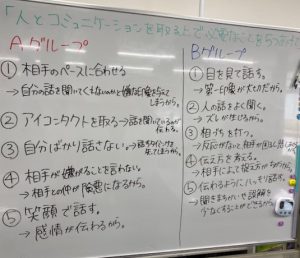 「人とコミュニケーションを取る上で必要なことを
Aグループ
① 相手のペースに合わせる
→自分の話を聞いてくれないのかと嫌な印象を与えて
しまうから。
② アイコンタクトを取る→話を聞いているのが
伝わる。
③ 自分ばかり話さない。→
しまうから。
④ 相手が嫌がることを言わない。
→相手との仲が険悪になるから。
⑤ 笑顔で話す。
→感情が伝わるから。
Bグループ
① 目を見て話す。
→第一印象が大切だから。
② 人の話をよく聞く。
→ズレが生じるから。
③ 相づちを打つ。
→反応がないと相手が
④ 伝え方を考える。
→相手によって捉え方がちがうから。
⑤ 伝わるようにハッキリ話す。
→聞きまちがいや誤解を
少なくすることができるから。